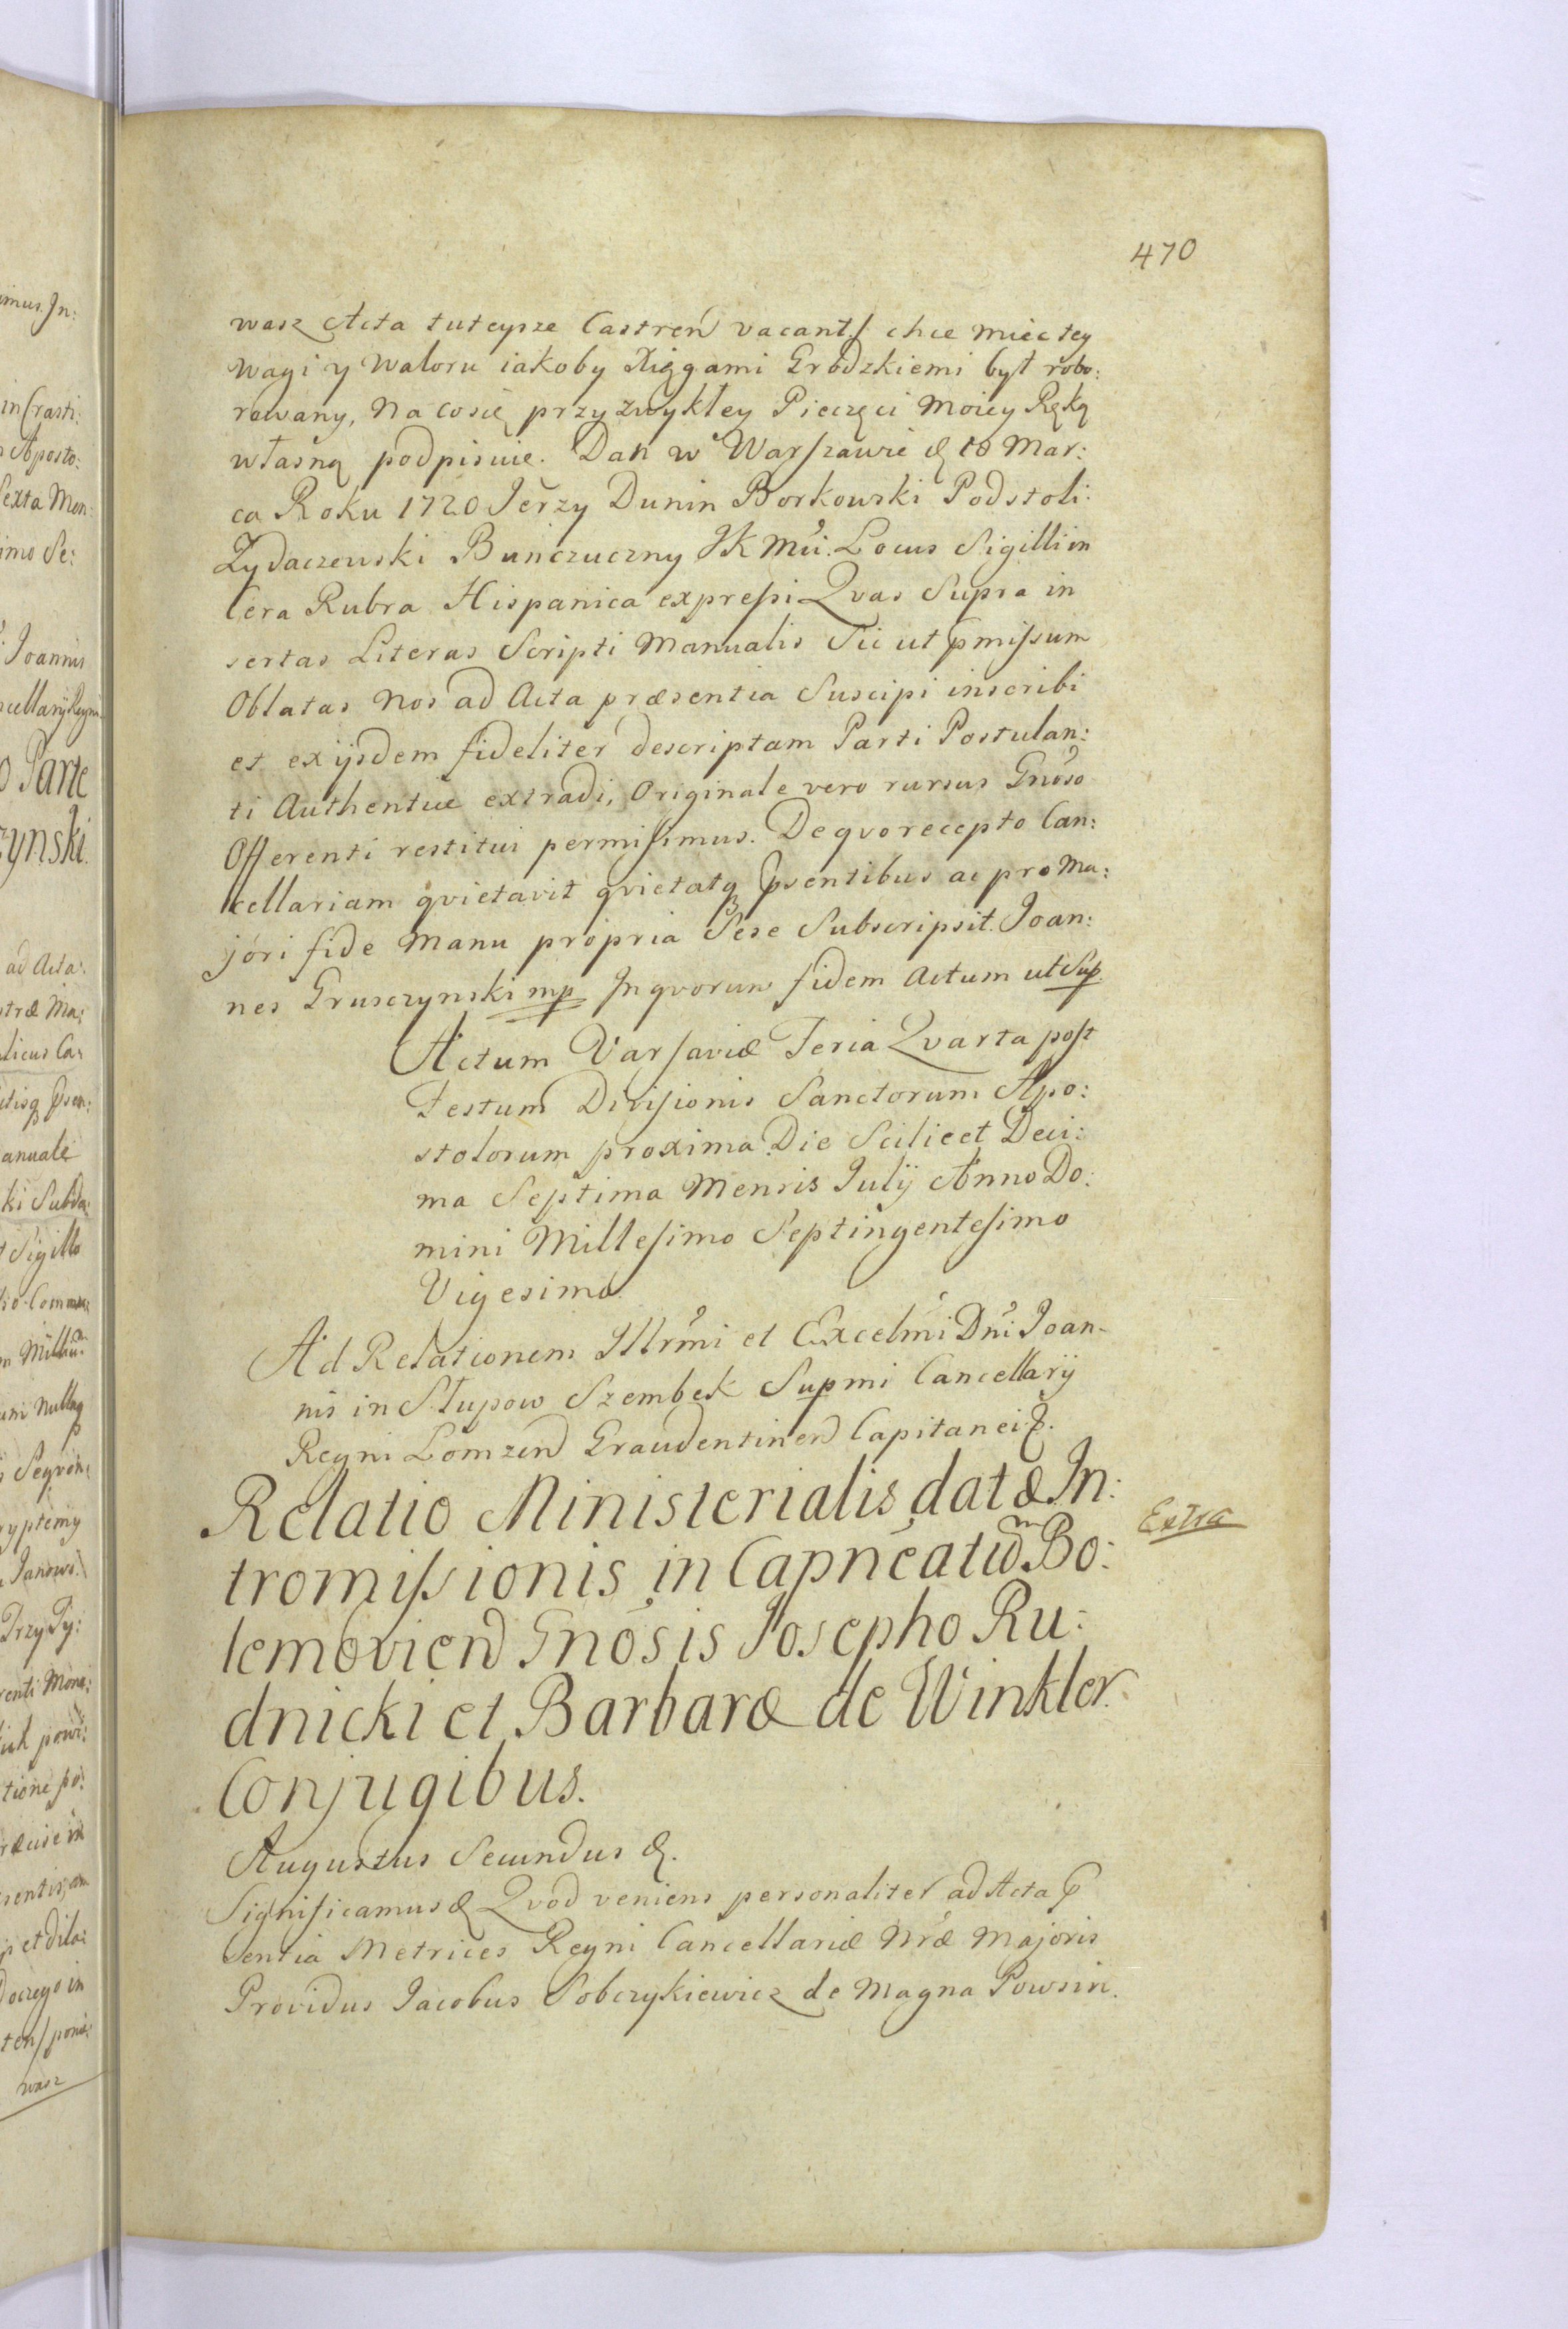 470
wasz Acta tuteysze Castreń vacant/ chce miec tey
wagi y waloru iakoby Xięgami Grodzkiemi był robo:
rowany, na co się przy zwykłey Pieczęci moiey Ręką
własną podpisuie. Dan w Warszawie d 18 Mar:
ca Roku 1720 Jerzy Dunin Borkowski Podstoli
Zydaczewski Bunczuczny JK Mći. Locus Sigilli in
Cera Rubra Hispanica expressi Qvas Supra in
sertas Literas Scripti Manualis Sic ut pmissum
Oblatas nos ad Acta præsentia Suscipi inscribi
et ex ijsdem fideliter descriptam Parti Postulan:
ti Authentice extradi, Originale vero rursus Gnoso
Offerenti restitui permisimus. De qvo recepto Can:
cellariam qvietavit qvietatq psentibus ac pro Ma:
jori fide manu propria Sese Subscripsit. Joan:
nes Grusczynski mp In qvorum fidem Actum ut Sup.
Actum Varsaviæ Feria Qvarta post
Festum Divisionis Sanctorum Apo:
stolorum proxima Die Scilicet Deci:
ma Septima Mensis Julij Anno Do:
mini Millesimo Septingentesimo
Vigesimo.
Ad Relationem Illrmi et Excelmi Dni Joan-
nis in Słupow Szembek Supmi Cancellarij
Regni Lomzen Graudentinen Capitanei &.
Relatio Ministerialis datæ In:
tromissionis in Capneatum Bo:
lemovien Gnosis Josepho Ru:
dnicki et Barbaræ de Winkler.
Conjugibus.
Extra
Augustus Secundus &.
Significamus & Qvod veniens personaliter ad Acta p
sentia Metrices Regni Cancellariæ Nræ Majoris
Providus Jacobus Sobczykiewicz de Magna Powsin.
imus. In:
in Crasti:
Aposto:
Sexta Men
imo Se:
Joannis
cellarij Regni
Parte
zynski.
ad Acta
stræ Ma:
licus Ca:
anuale
ki Subda:
Sigillo